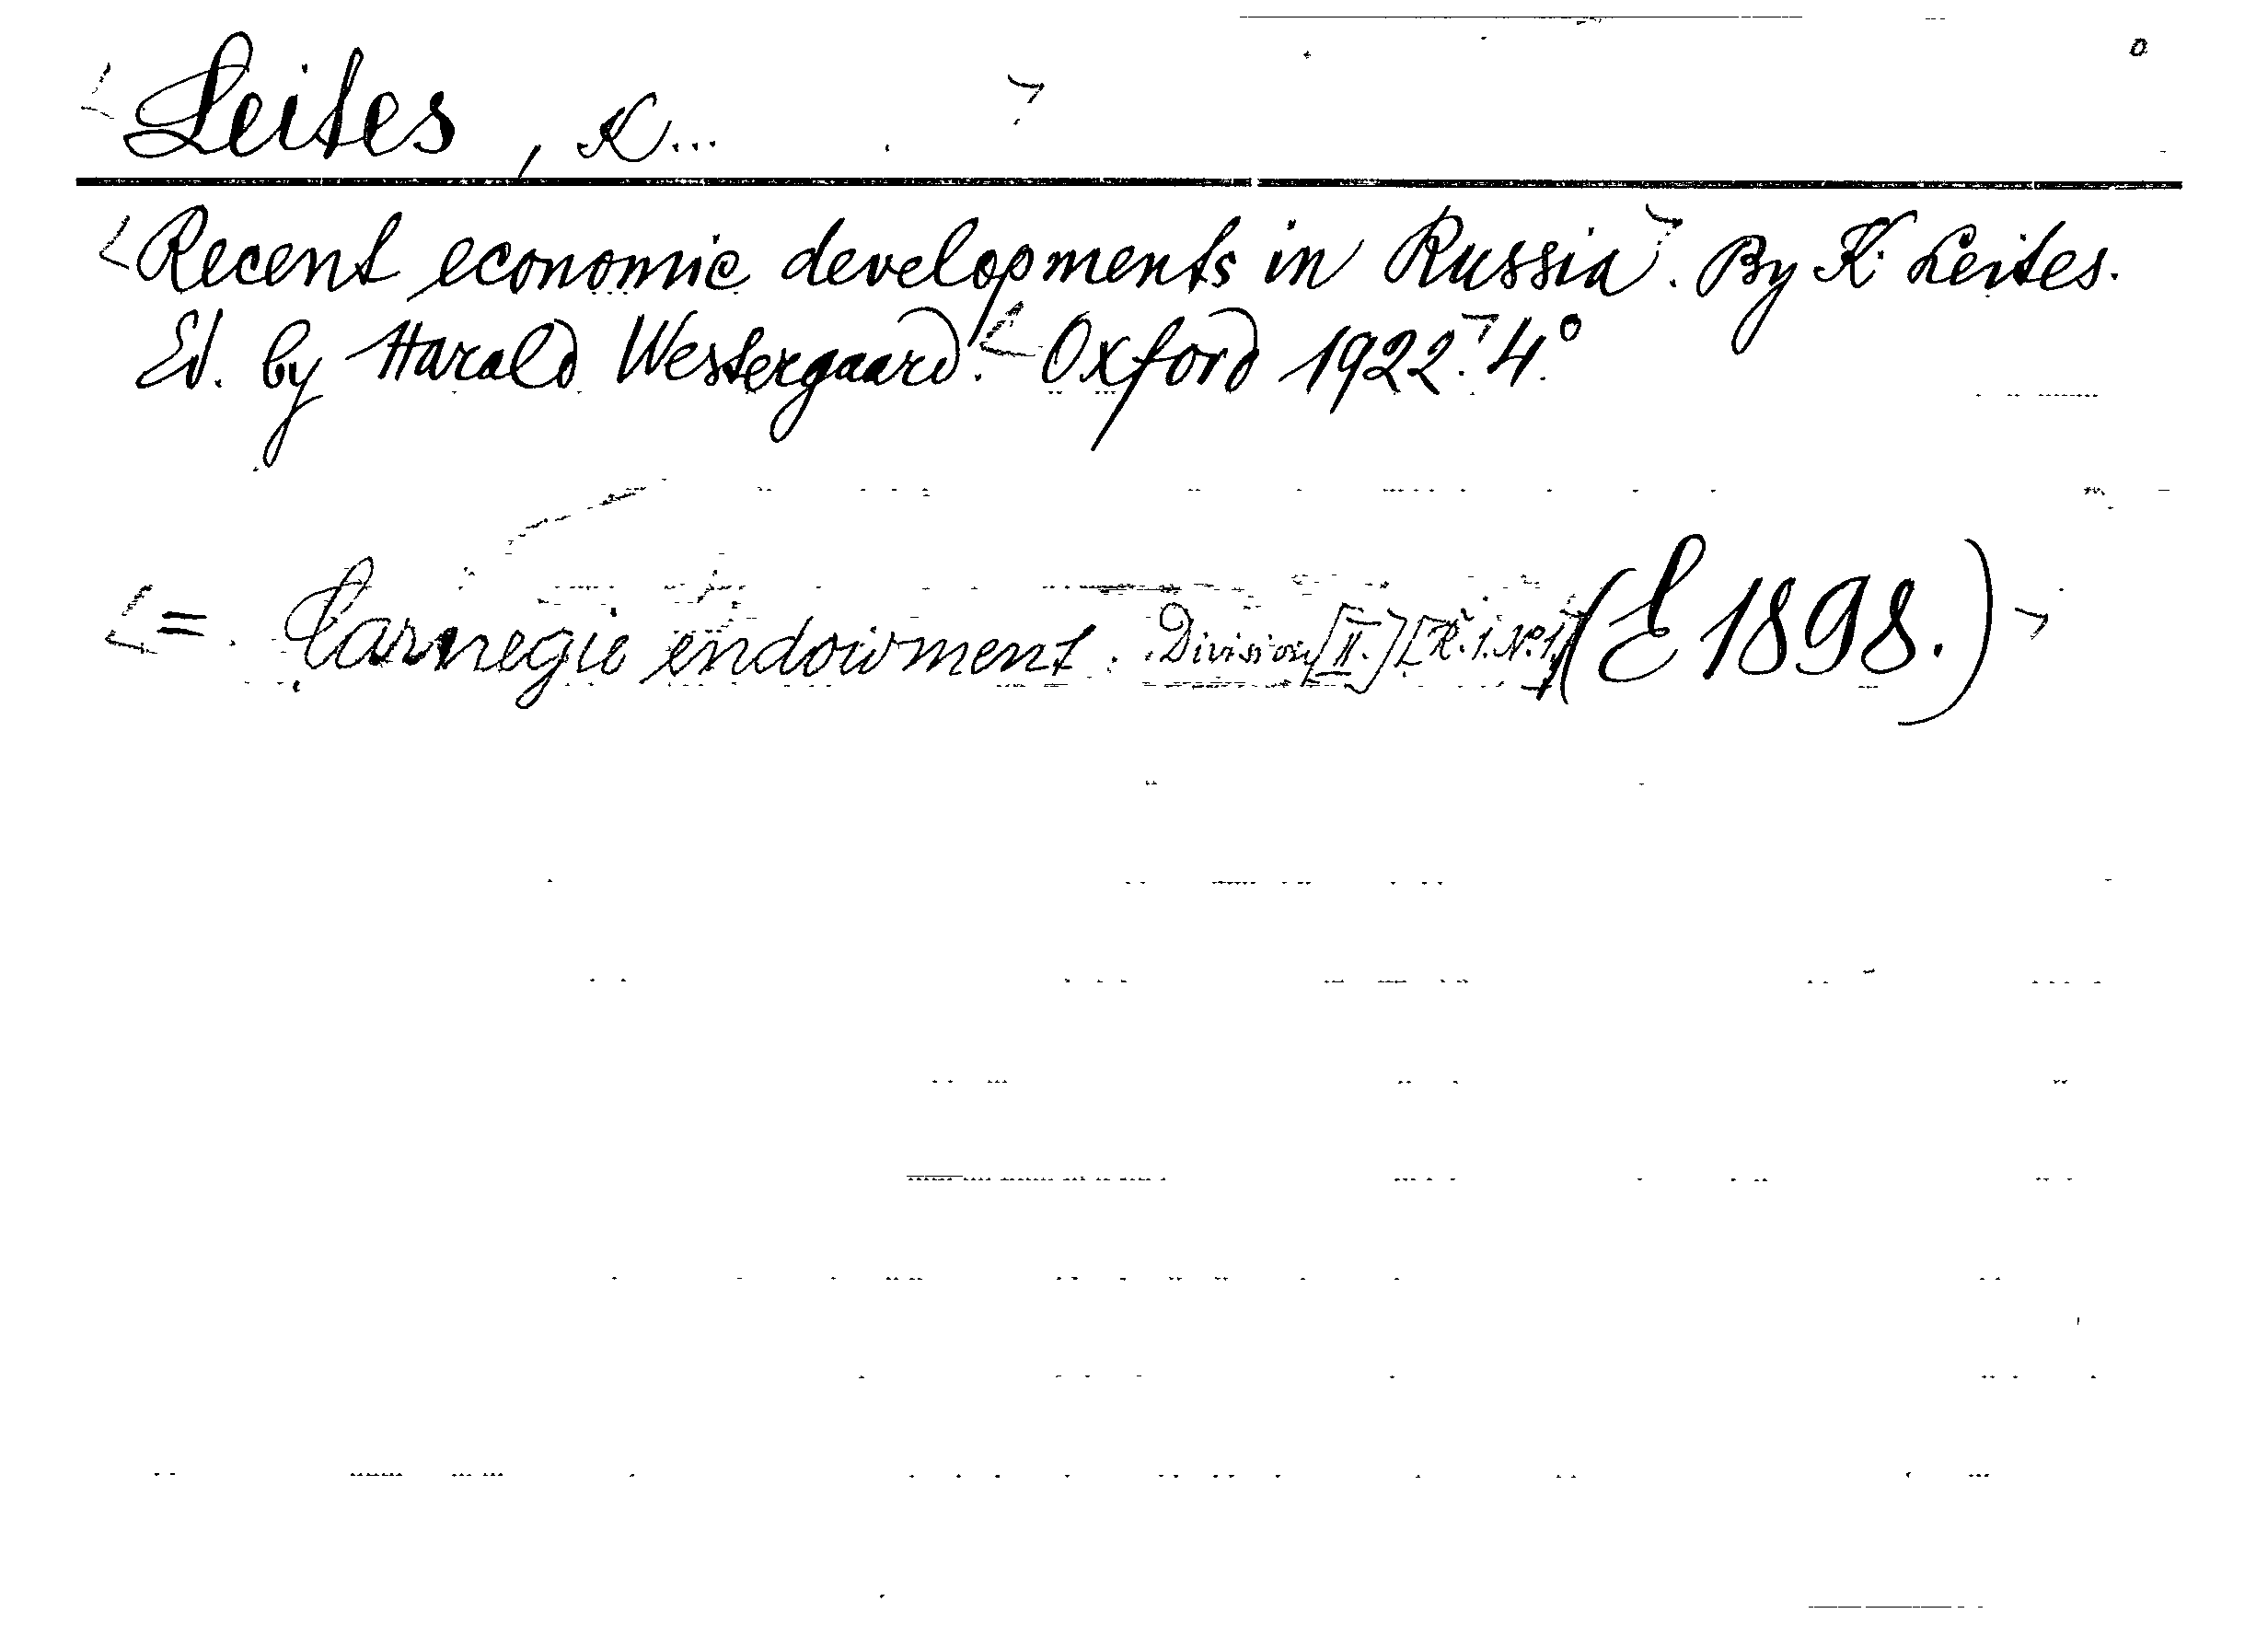 Leites, K...
Recent economic developments in Russia. By K. Leites.
Ed. by Harald Westergaard. Oxford 1922. 4°
= Carnegie endowment. Division [II.] [R. 1. No. 1.] (E 1898.)